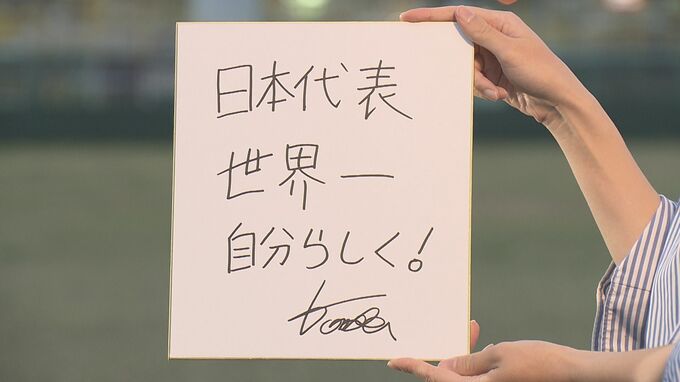 日本代表
世界一
自分らしく!